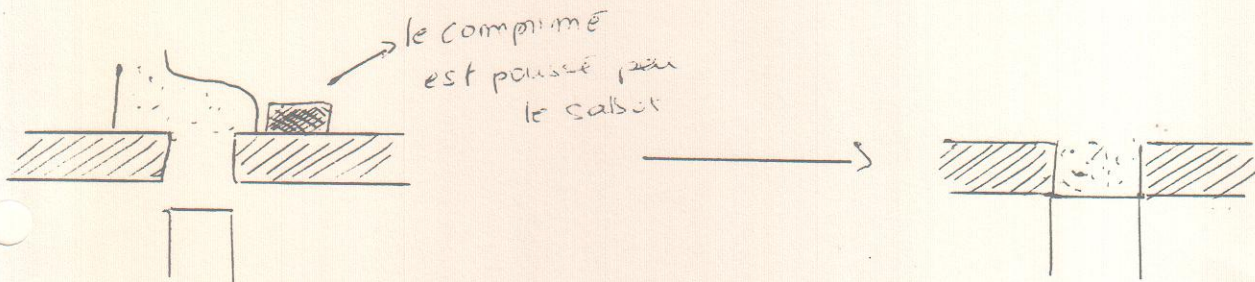 le comprimé
est poussé par
le sabot